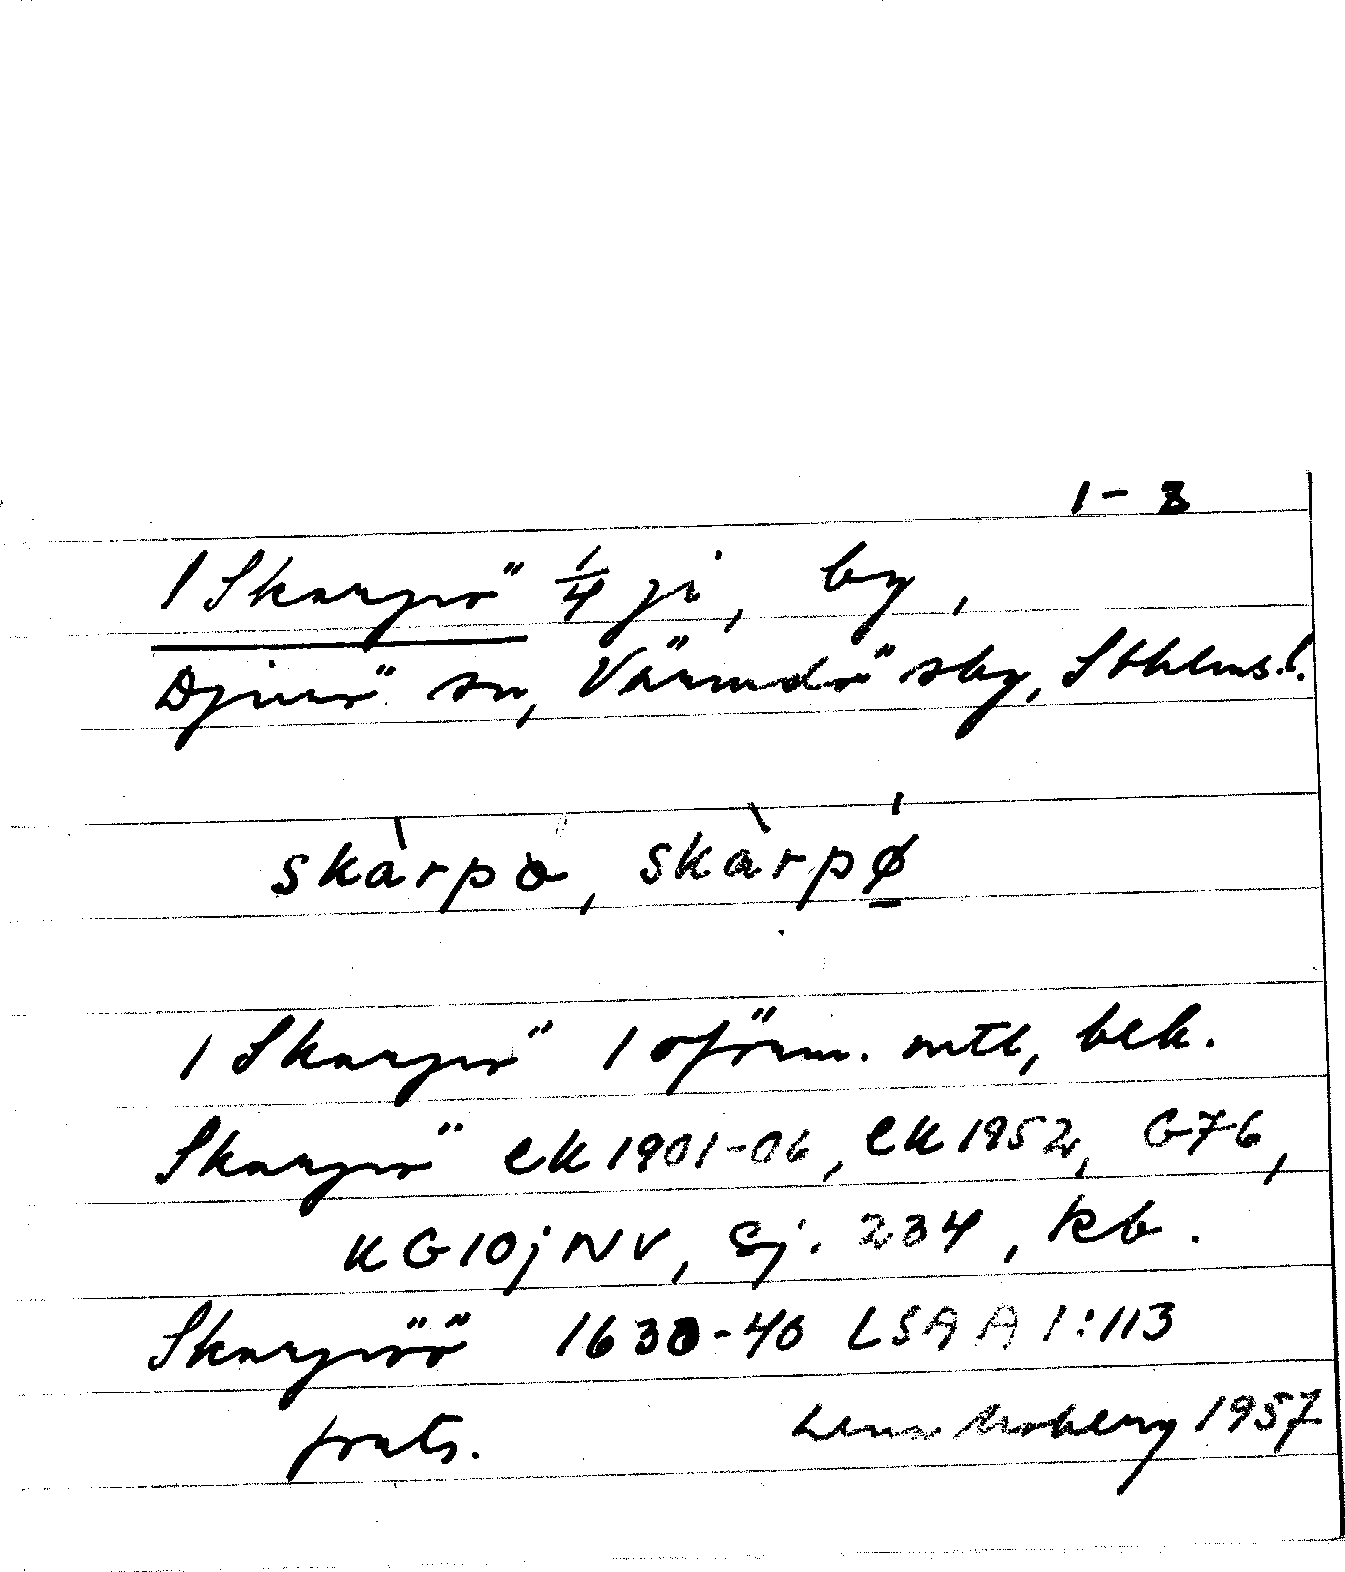 1-3
1 Skarpö 1/4 ji, by,
Djurö sn, Värmdö sky, Sthlms l.
skàrpö, skàrpǿ̲
1 Skarpö 1 oförm. mtl, bek.
Skarpö EK 1901-06, EK 1952, G76,
KG10jNV, Sj. 234, kb.
Skarpöö 1630-40 LSA A1:113
forts. Moberg 1957